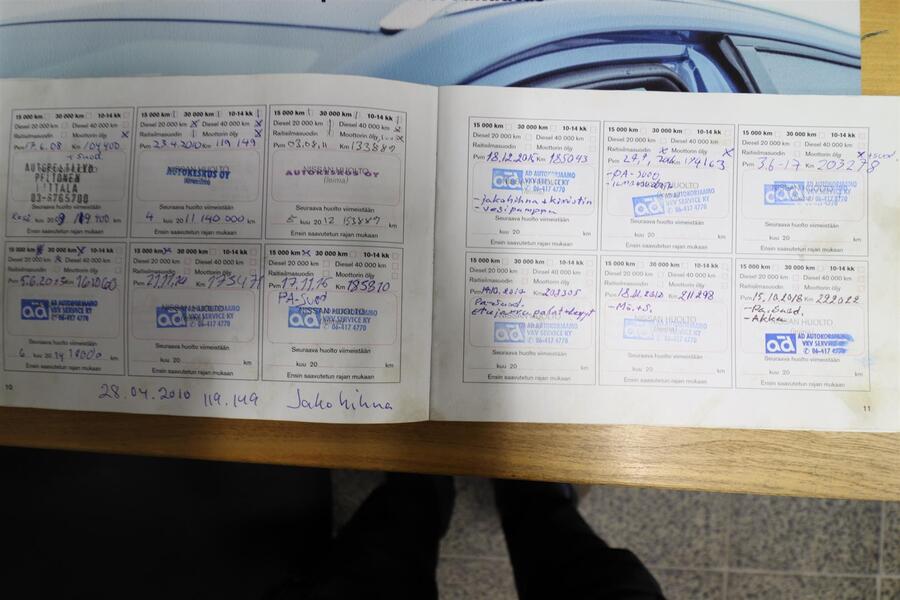 15 000 km 30 000 km 10-14 kk
Diesel 20 000 km Diesel 40 000 km
Raitisilmasuodin Moottorin öljy
Pvm 17.6.08 Km 104400
+ suod.
PELTONEN
IITTALA
03-6765700
Seuraava huolto viimeistään
kuu 20 09 119 400 km
Ensin saavutetun rajan mukaan
15 000 km 30 000 km 10-14 kk
Diesel 20 000 km Diesel 40 000 km
Raitisilmasuodin Moottorin öljy
Pvm 23.4.2010 Km 119 149
AUTOKESKUS OY
Seuraava huolto viimeistään
4 kuu 20 11 140 000 km
Ensin saavutetun rajan mukaan
15 000 km 30 000 km 10-14 kk
Diesel 20 000 km Diesel 40 000 km
Raitisilmasuodin Moottorin öljy
Pvm 03.08.11 Km 133889
AUTOKESKUS OY
Seuraava huolto viimeistään
kuu 20 12 153889 km
Ensin saavutetun rajan mukaan
15 000 km 30 000 km 10-14 kk
Diesel 20 000 km Diesel 40 000 km
Raitisilmasuodin Moottorin öljy
Pvm Km
ad AD AUTOKORJAAMO
VKV SERVICE KY
✆ 06-417 4770
Seuraava huolto viimeistään
6 kuu 20 14 km
Ensin saavutetun rajan mukaan
15 000 km 30 000 km 10-14 kk
Diesel 20 000 km Diesel 40 000 km
Raitisilmasuodin Moottorin öljy
Pvm Km 173471
NISSAN HUOLTO
ad AD AUTOKORJAAMO
VKV SERVICE KY
✆ 06-417 4770
Seuraava huolto viimeistään
kuu 20 km
Ensin saavutetun rajan mukaan
15 000 km 30 000 km 10-14 kk
Diesel 20 000 km Diesel 40 000 km
Raitisilmasuodin Moottorin öljy
Pvm 17.11.15 Km 185310
PA-suod
NISSAN HUOLTO
ad VKV SERVICE KY
✆ 06-417 4770
Seuraava huolto viimeistään
kuu 20 km
Ensin saavutetun rajan mukaan
10
28.04.2010 119.149 Jakohihna
15 000 km 30 000 km 10-14 kk
Diesel 20 000 km Diesel 40 000 km
Raitisilmasuodin Moottorin öljy
Pvm 18.12.2015 Km 185043
ad AD AUTOKORJAAMO
VKV SERVICE KY
✆ 06-417 4770
-jakohihna + kiristin
-vesipumppu
Seuraava huolto viimeistään
kuu 20 km
Ensin saavutetun rajan mukaan
15 000 km 30 000 km 10-14 kk
Diesel 20 000 km Diesel 40 000 km
Raitisilmasuodin Moottorin öljy
Pvm Km
-PA-suod
ad AD AUTOKORJAAMO
VKV SERVICE KY
✆ 06-417 4770
Seuraava huolto viimeistään
kuu 20 km
Ensin saavutetun rajan mukaan
15 000 km 30 000 km 10-14 kk
Diesel 20 000 km Diesel 40 000 km
Raitisilmasuodin Moottorin öljy + suod.
Pvm 3.6-17 Km 203278
ad AD AUTOKORJAAMO
VKV SERVICE KY
✆ 06-417 4770
Seuraava huolto viimeistään
kuu 20 km
Ensin saavutetun rajan mukaan
15 000 km 30 000 km 10-14 kk
Diesel 20 000 km Diesel 40 000 km
Raitisilmasuodin Moottorin öljy
Pvm Km 203305
Pa-suod.
etujarrupalat + levyt
ad AD AUTOKORJAAMO
VKV SERVICE KY
✆ 06-417 4770
Seuraava huolto viimeistään
kuu 20 km
Ensin saavutetun rajan mukaan
15 000 km 30 000 km 10-14 kk
Diesel 20 000 km Diesel 40 000 km
Raitisilmasuodin Moottorin öljy
Pvm Km 211298
-Mö.+S.
NISSAN HUOLTO
ad AD AUTOKORJAAMO
VKV SERVICE KY
✆ 06-417 4770
Seuraava huolto viimeistään
kuu 20 km
Ensin saavutetun rajan mukaan
15 000 km 30 000 km 10-14 kk
Diesel 20 000 km Diesel 40 000 km
Raitisilmasuodin Moottorin öljy
Pvm 15.10.2018 Km 222022
-Pa.Suod.
-Akku
NISSAN HUOLTO
ad AD AUTOKORJAAMO
VKV SERVICE KY
✆ 06-417 4770
Seuraava huolto viimeistään
kuu 20 km
Ensin saavutetun rajan mukaan
11